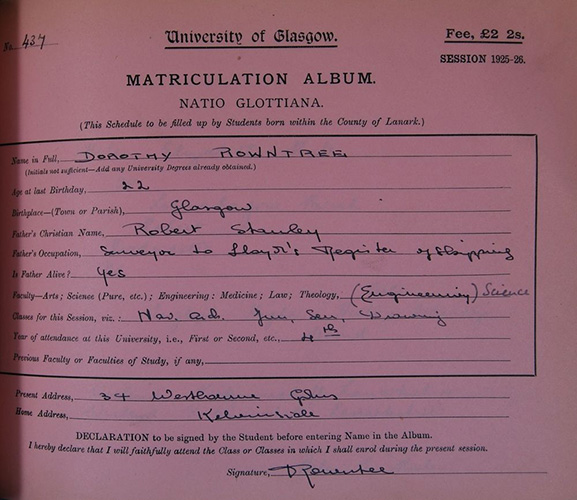 No. 437
University of Glasgow.
Fee, £2 2s.
SESSION 1925-26.
MATRICULATION ALBUM.
NATIO GLOTTIANA.
(This Schedule to be filled up by Students born within the County of Lanark.)
Name in Full, DOROTHY ROWNTREE
(Initials not sufficient—Add any University Degrees already obtained.)
Age at last Birthday, 22
Birthplace—(Town or Parish), Glasgow
Father's Christian Name, Robert Stanley
Father's Occupation, Surveyor to Lloyd's Register of Shipping
Is Father Alive? Yes
Faculty—Arts; Science (Pure, etc.); Engineering; Medicine; Law; Theology, (Engineering) Science
Classes for this Session, viz.: Nav. Arch. Jun, Sen, Drawing
Year of attendance at this University, i.e., First or Second, etc., 4th
Previous Faculty or Faculties of Study, if any,
Present Address, 34 Gdns
Home Address, Kelvinside
DECLARATION to be signed by the Student before entering Name in the Album.
I hereby declare that I will faithfully attend the Class or Classes in which I shall enrol during the present session.
Signature, DRowntree